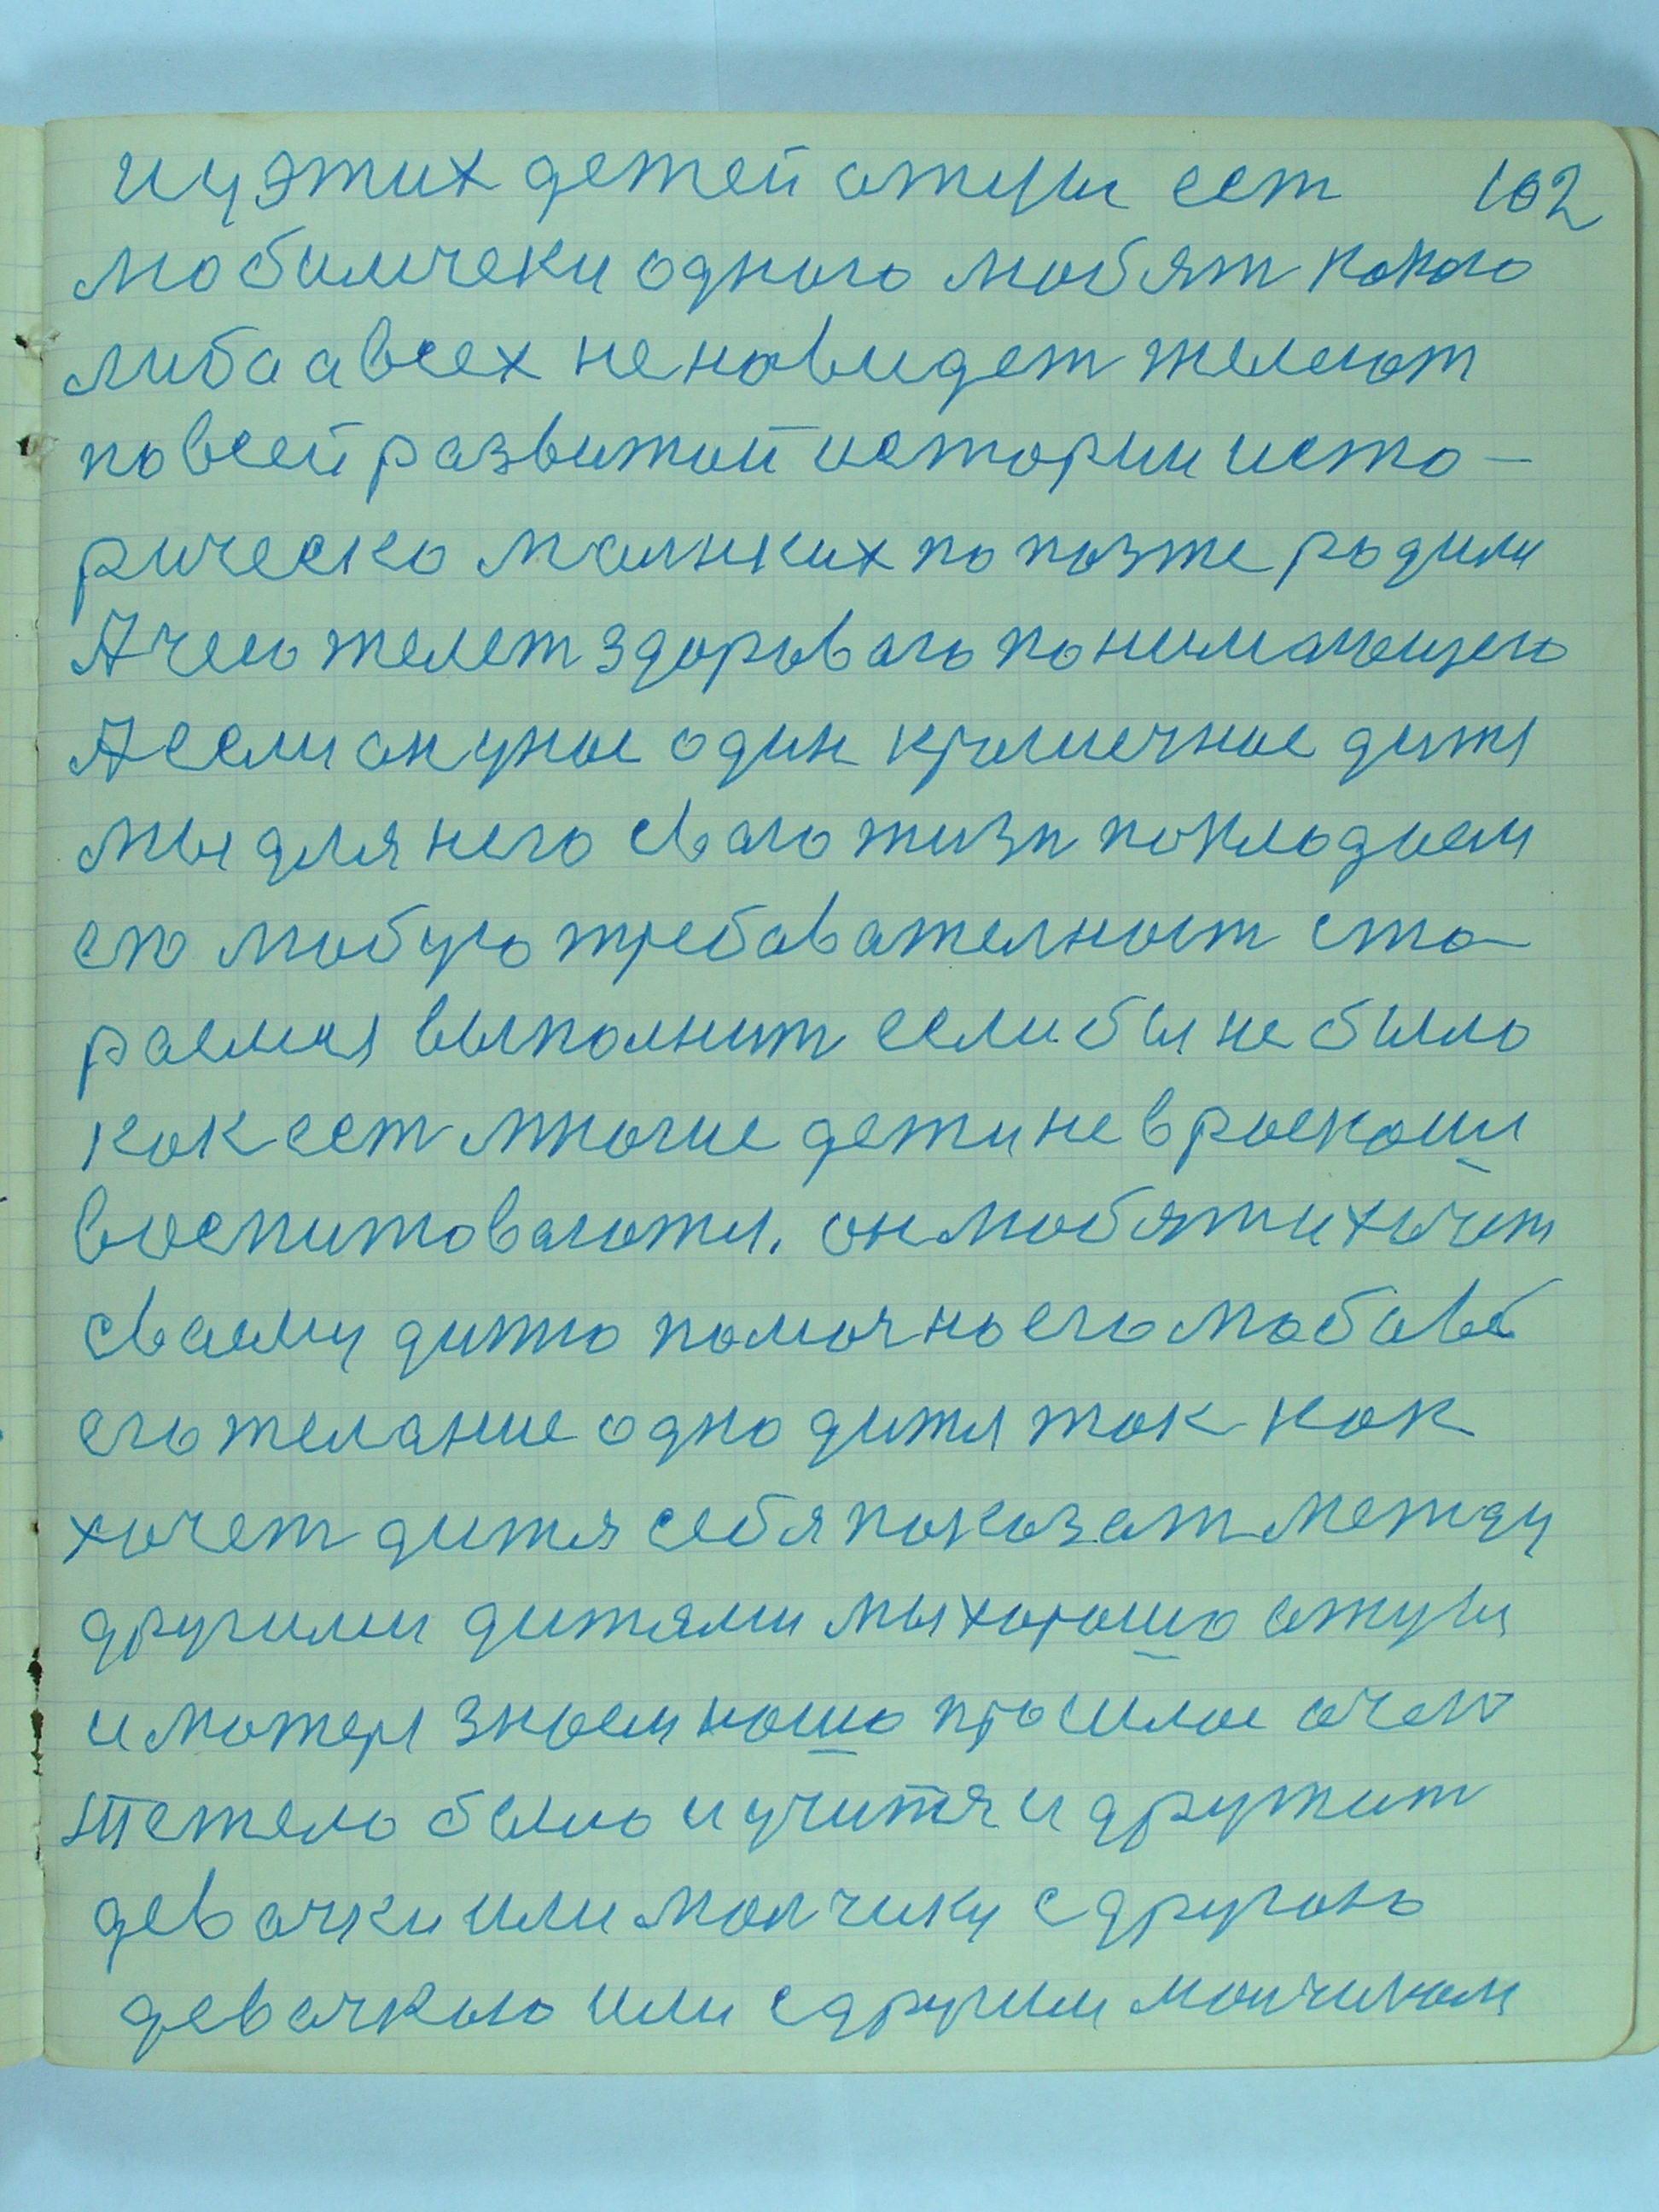 и у этих детей отцы ест 102
любимчеки одного любят какого
либа а всех не новидет желеют
по всей развитой истории исто-
рическо малнких по позже родили
А чего желет здороваго понимающего
А если он у нас один кромечное дитя
мы для него сваю жизн покладаем
его любую требавателност ста-
раемся выполнит если бы не было
как ест многие дети не в роскоши
воспитоваются. он любят и хочет
сваему дитю помоч но его любовь
его желание одно дитя так как
хочет дитя себя показат между
другими дитями мы хорошо отцы
и матеря знаем нашо прошлое очен
тежело было и учится и дружит
девачки или малчику с другою
девачкою или с другим малчиком